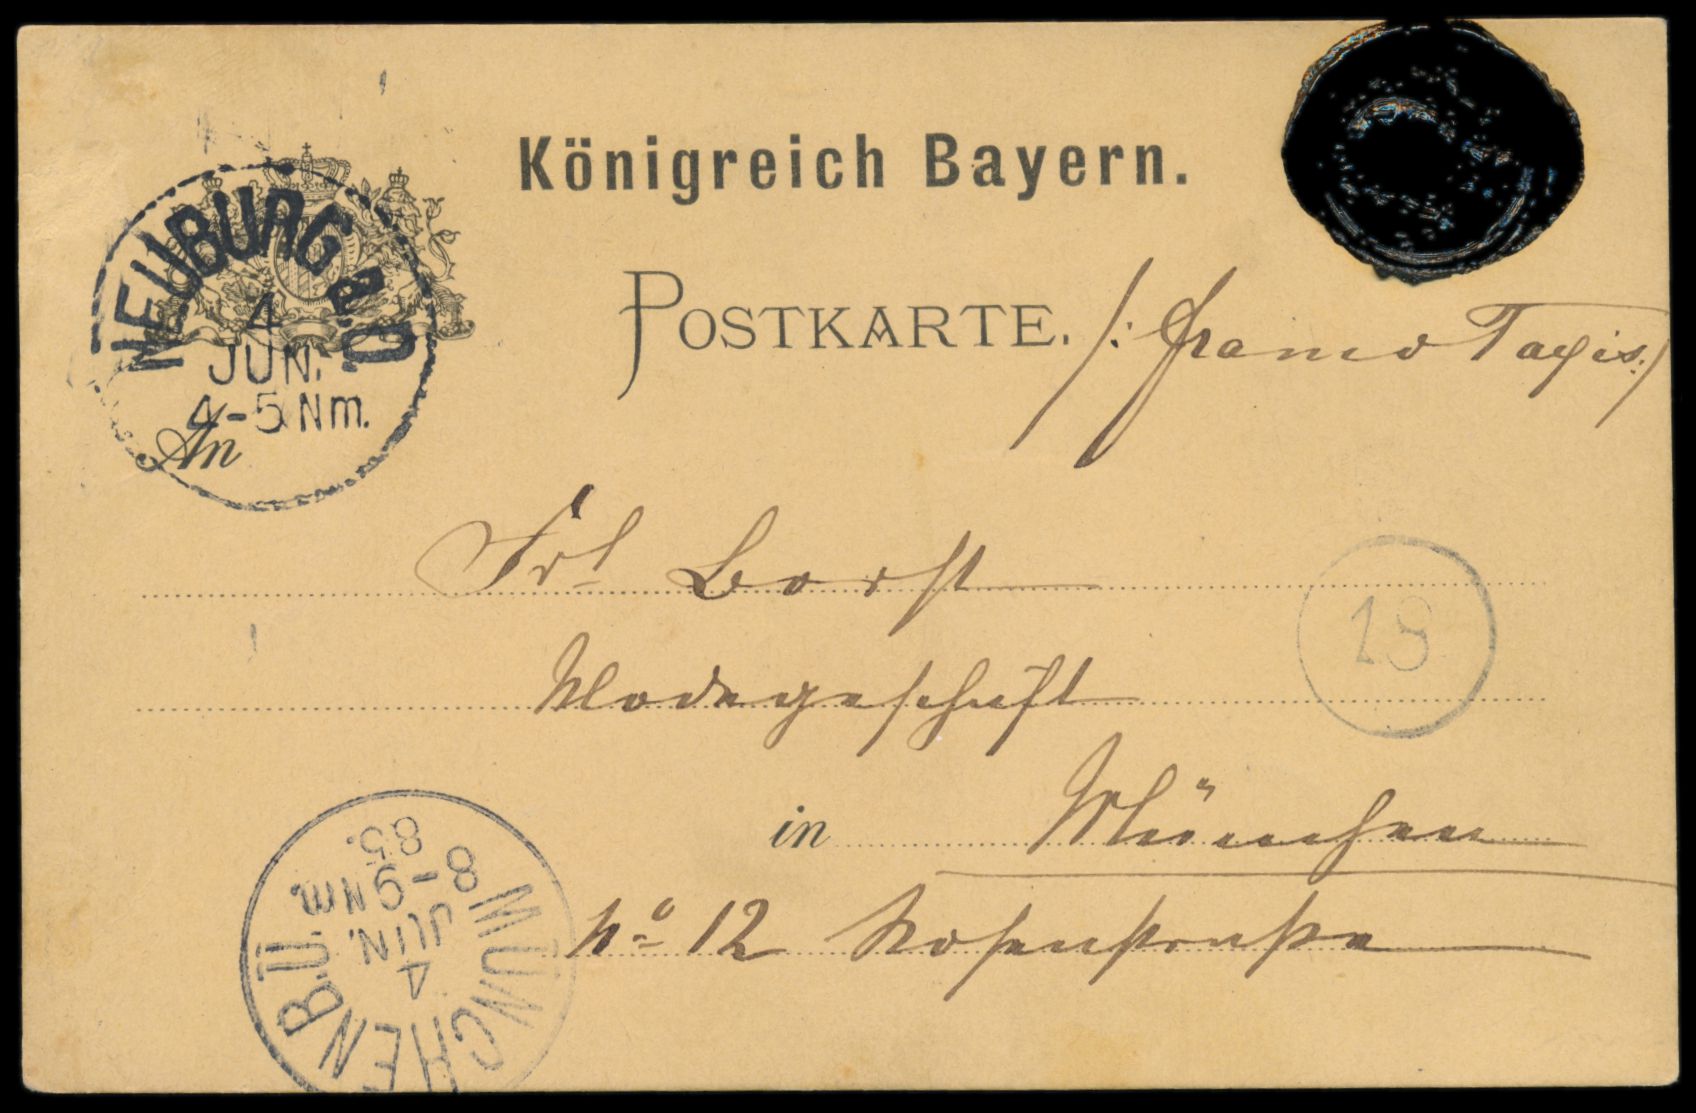 Königreich Bayern.
NEUBURG a.D.
4
JUN.
4-5 Nm.
POSTKARTE. /: franco Taxis :/
An
Frl Borst
19
Modegeschäft
in München
No 12 Rosenstraße
MÜNCHEN B.Ü.
4
JUN.
8-9 NM.
85.